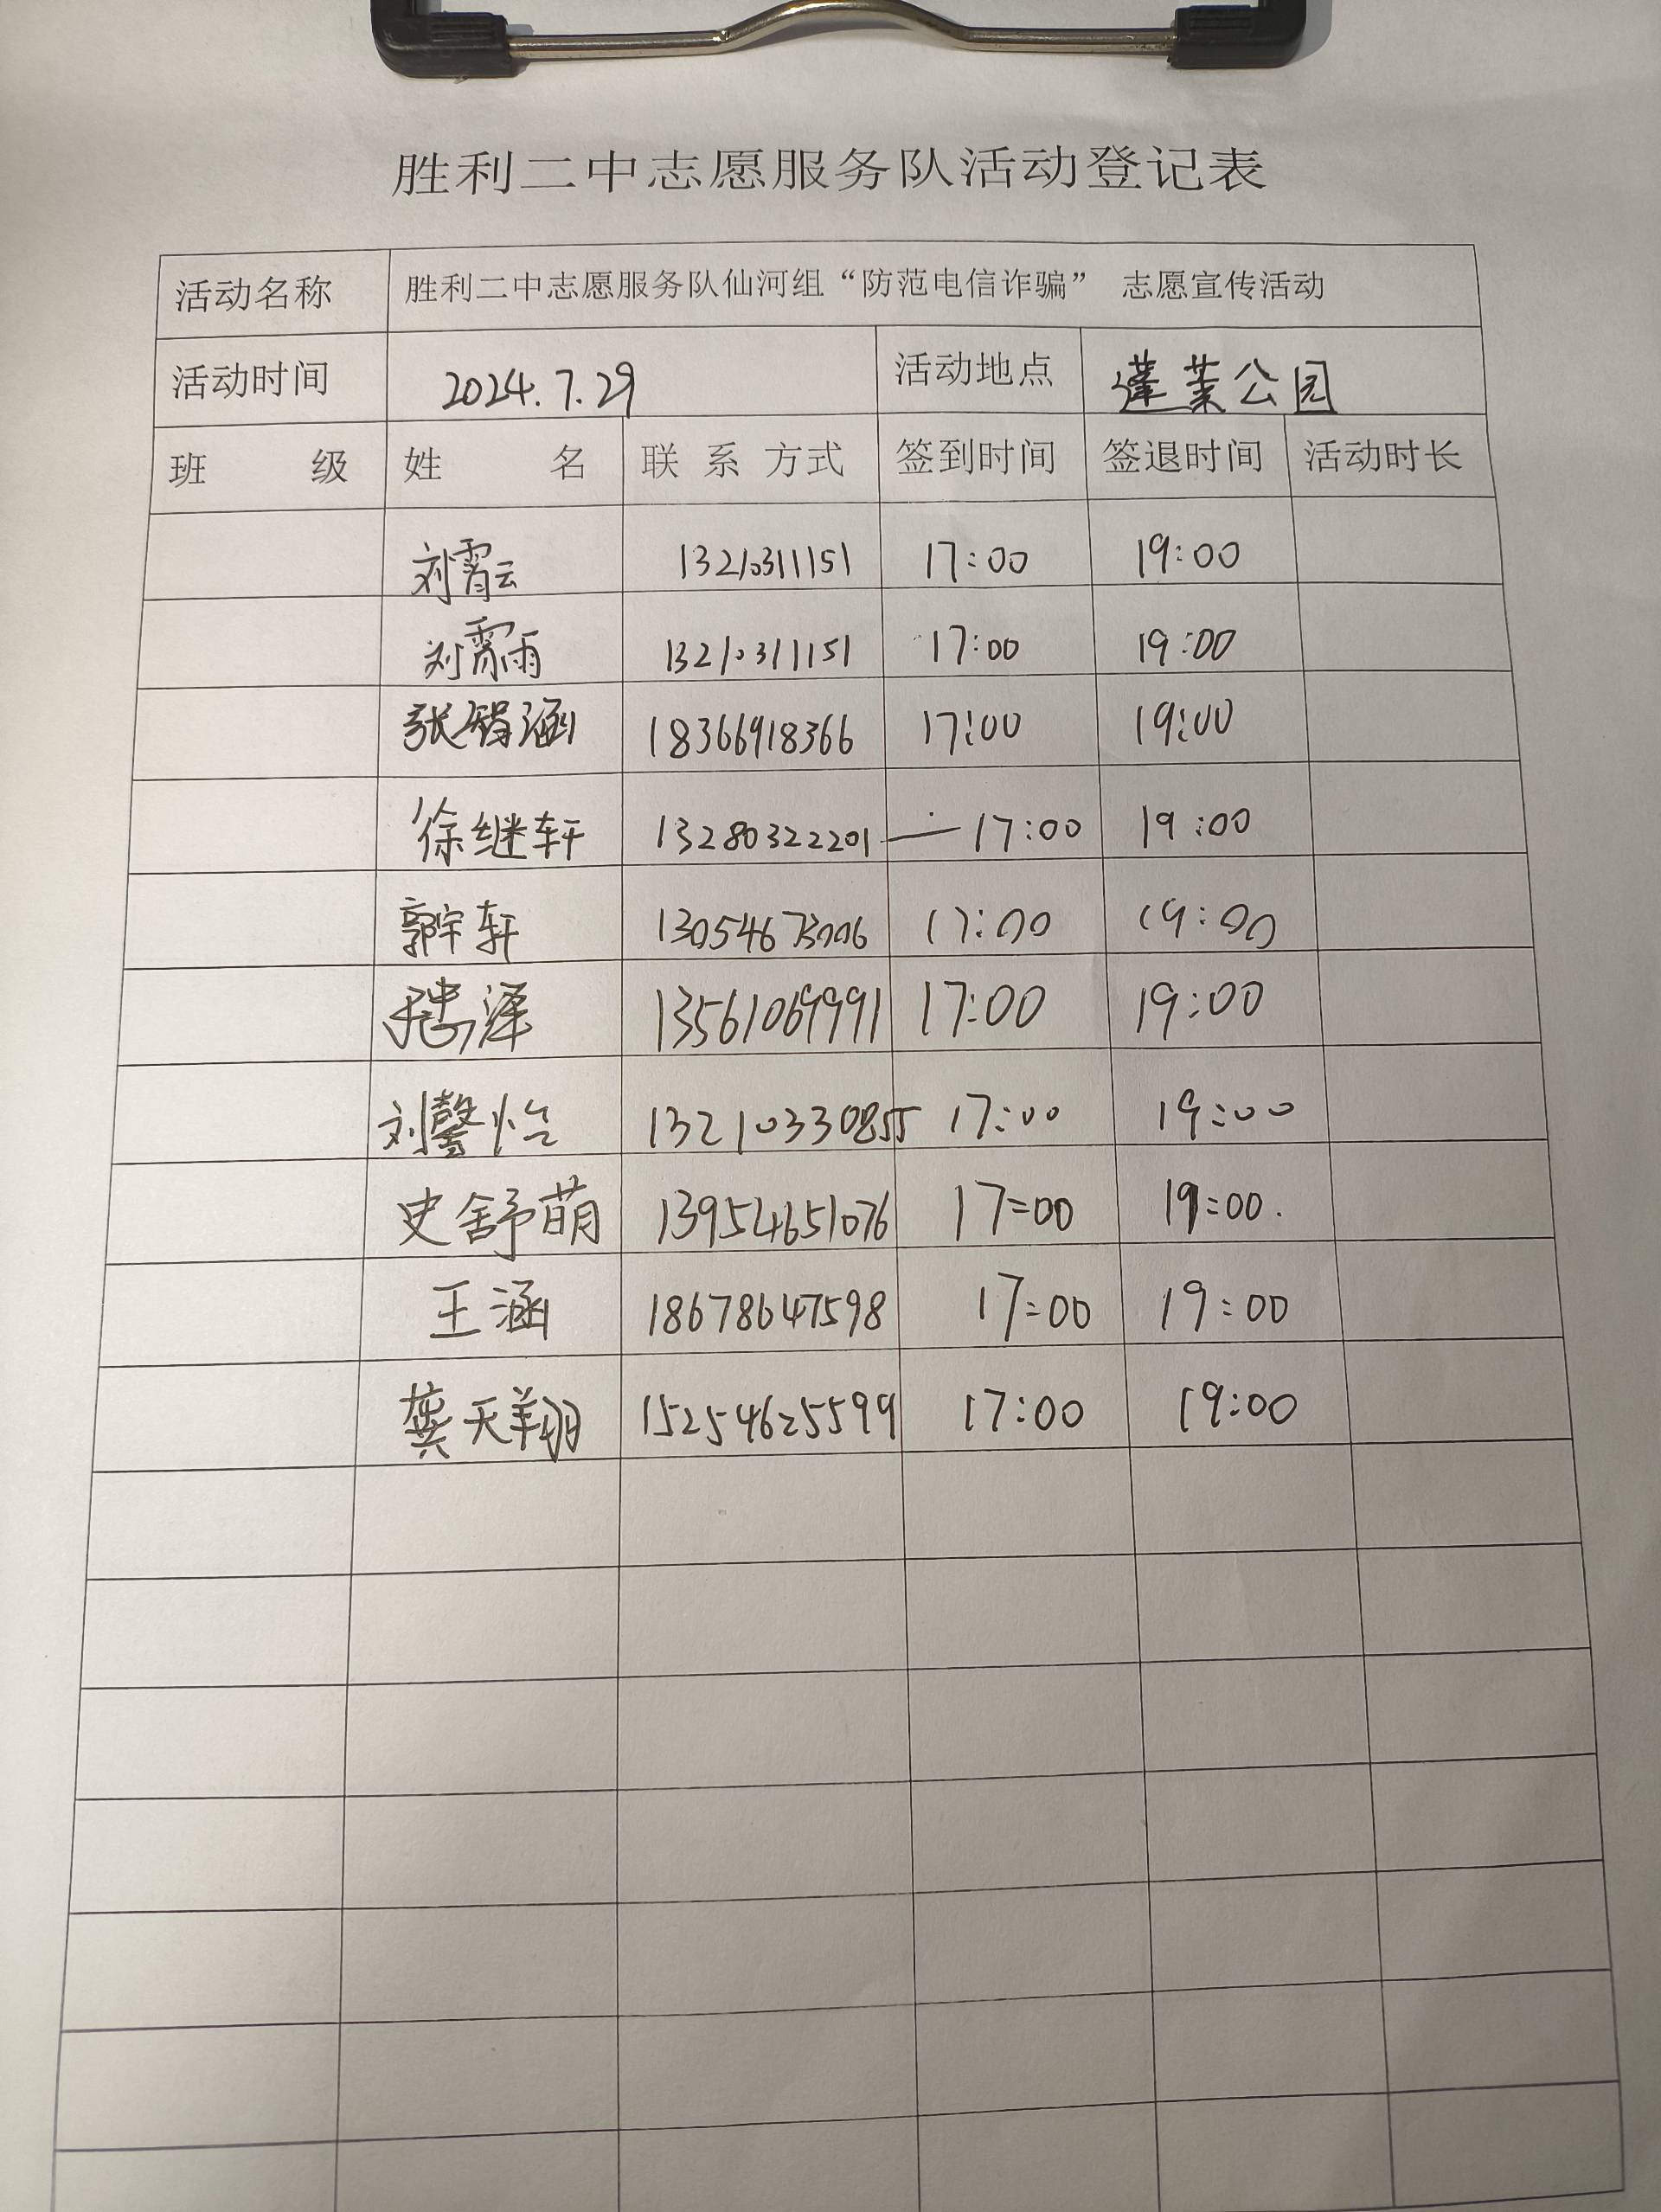 胜利二中志愿服务队活动登记表
活动名称 胜利二中志愿服务队仙河组“防范电信诈骗” 志愿宣传活动
活动时间 2024.7.29 活动地点 蓬莱公园
班 级 姓 名 联 系 方式 签到时间 签退时间 活动时长
刘霄云 13210311151 17:00 19:00
刘霂雨 13210311151 17:00 19:00
张 涵 18366918366 17:00 19:00
徐继轩 13280322201 — 17:00 19:00
郭宇轩 13054673006 17:00 19:00
泽 13561069991 17:00 19:00
刘馨怡 13210330855 17:00 19:00
史舒萌 13954651076 17:00 19:00.
王涵 18678647598 17:00 19:00
龚天翔 15254625599 17:00 19:00